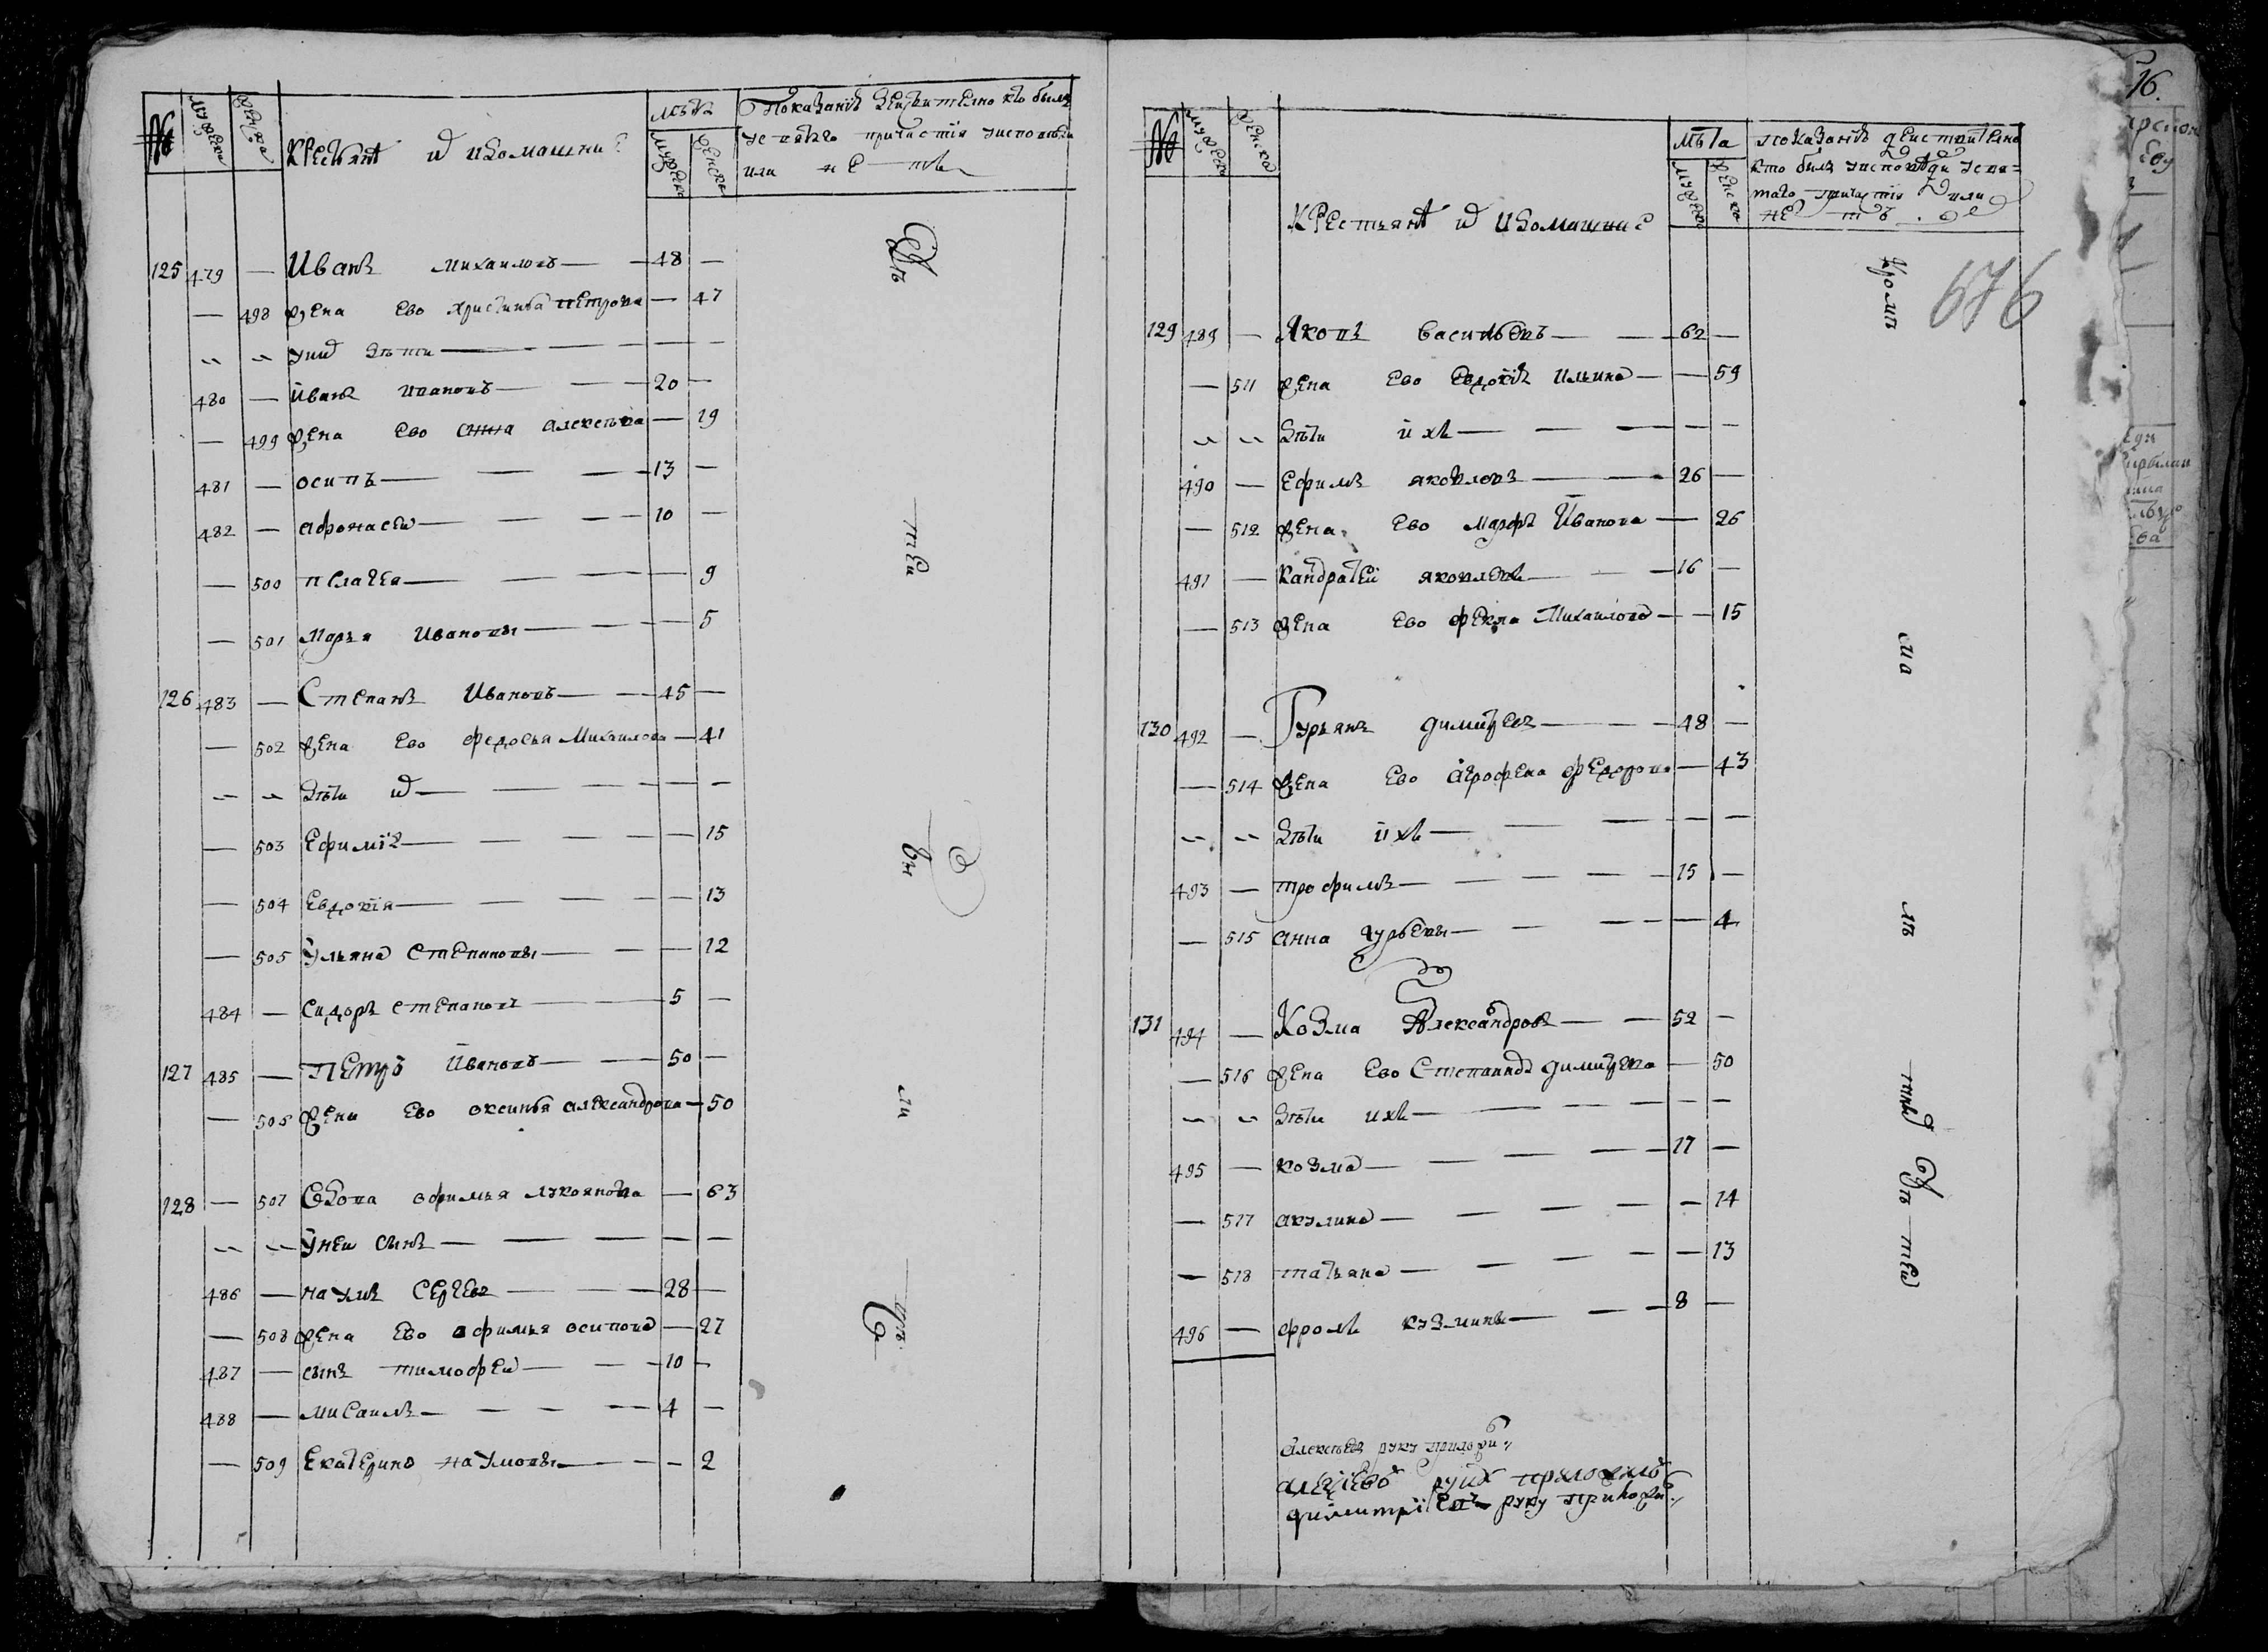 № мужеска женска Крестьянѣ и идомашние
мужеска женска
Показаниѣ кто былъ
причастия
или нетъ
125 479 — Иванъ михаиловъ — 48 —
— 498 жена ево христинья петрова — 47
у них дѣти — — —
480 — иванъ ивановъ — 20 —
— 499 жена ево анна алексѣева — 19
481 — осипъ — 13 —
482 — афонасеи — 10 —
— 500 пелагея — 9
— 501 марья ивановы — 5
126 483 — Степанъ Ивановъ — 45 —
— 502 жена ево федосья михаилова — 41
дѣти и — — —
— 503 Ефимiѣ — 15
— 504 Евдокiя — 13
— 505 ульяна степановы — 12
484 — Сидоръ степановъ — 5 —
127 485 — Петръ ивановъ — 50 —
— 506 жена ево оксинья александрова — 50
128 — 507 вдова офимья лукоянова — 63
у неи сынъ — — —
486 — наумъ сергеевъ — 28 —
— 508 жена ево афимья осипова — 27
487 — сынъ тимофеи — 10 —
488 — мисаилъ — 4 —
— 509 екатерина наумовы — 2
16.
676
№ мужеска женска Крестьянѣ и идомашние
лѣта
мужеска женска
показаниѣ действителна
кто былъ уисповѣди
таго причастия или
нетъ
129 489 — Яковъ васильевъ — 62 —
— 511 жена ево евдокiѣ ильина — 59
дѣти ихъ — — —
490 — ефимъ яковловъ — 26 —
— 512 жена ево марфа Иванова — 26
491 — кандратей яковлевъ — 16 —
— 513 жена ево фекла михаилова — 15
130 492 — Гурьянъ димитревъ — 48 —
— 514 жена ево агрофена федорова — 43
дѣти ихъ — — —
493 — трофимъ — 15 —
— 515 анна гурьевы — 4
131 494 — Козма Александровъ — 52 —
— 516 жена ево степанида димитрева — 50
дѣти ихъ — — —
495 — козма — 17 —
— 517 акулина — 14
— 518 татьяна — 13
496 — фролъ кузмины — 8 —
алексѣевъ руку приложи
руку приложилъ
димитрiевъ руку приложи